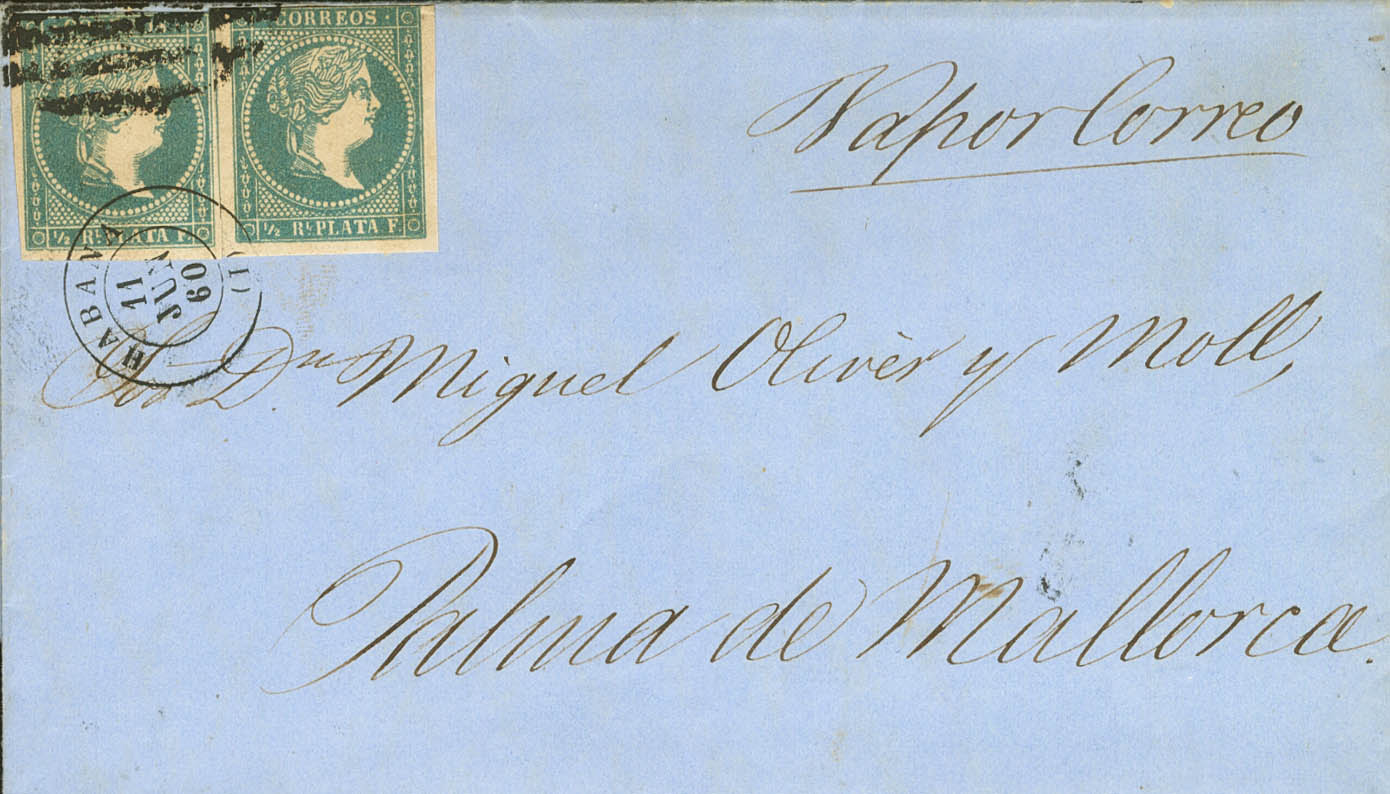 CORREOS CORREOS
½ Rl. PLATA F. ½ Rl. PLATA F.
HABANA
11
JUN
60
(1)
Vapor Correo
Sor. Dn. Miguel Olivèr y Moll,
Palma de Mallorca.